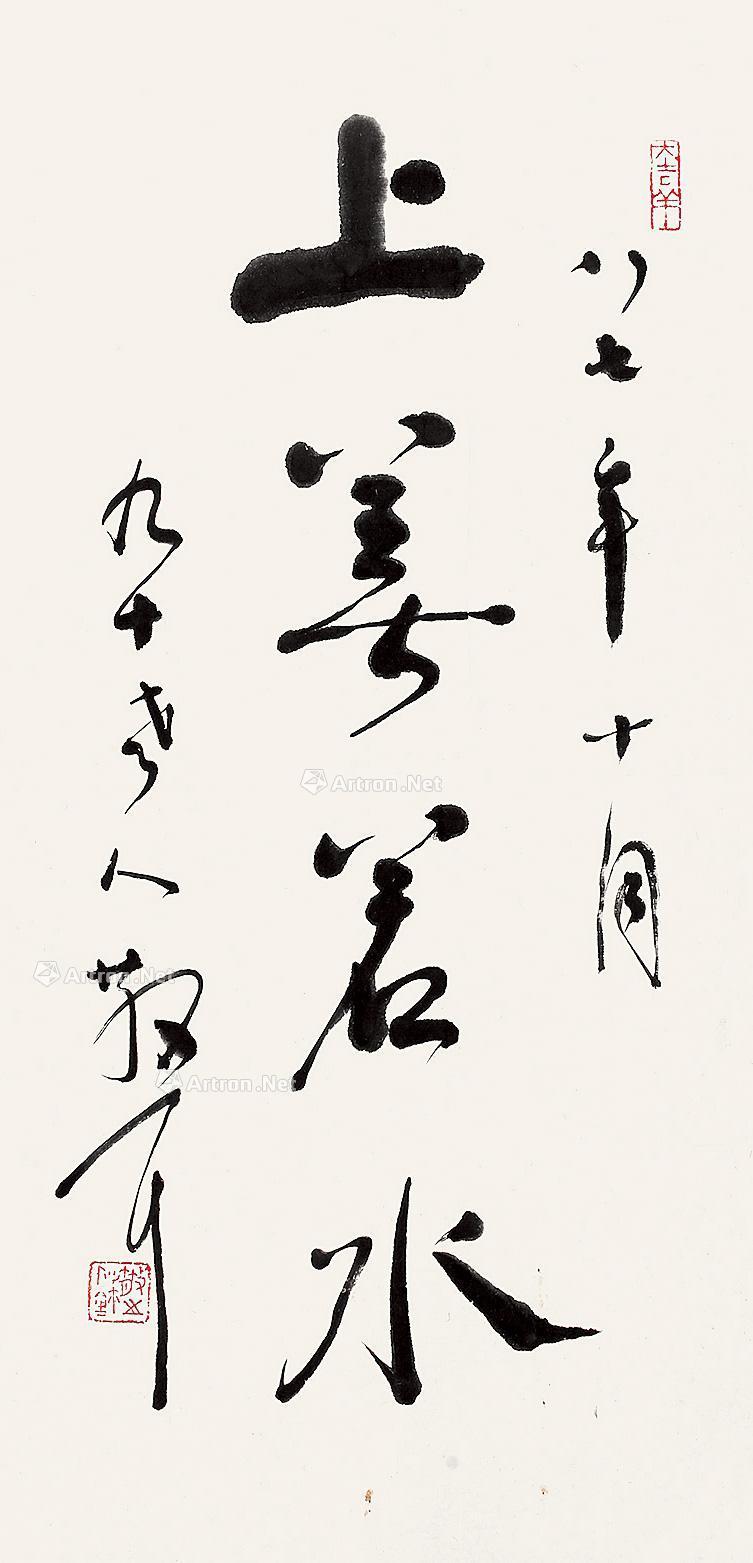 大吉羊
八七年十月
上善若水
九十老人散耳
Artron.Net
Artron.Net
Artron.Net